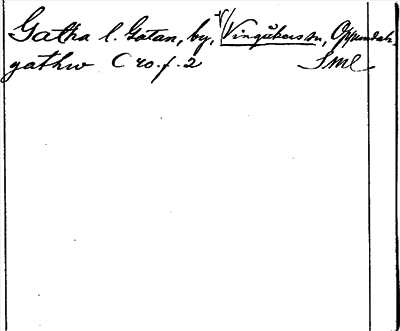 Gatha l. Gatan, by, Vingåkers sn, Oppundah.
gathw C 20.f.2 Sml